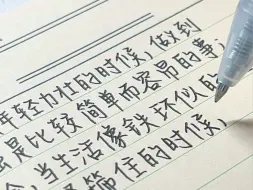 年轻力壮的时候，做到
是比较简单而容易的事，
当生活像铁环似的
箍住的时候，